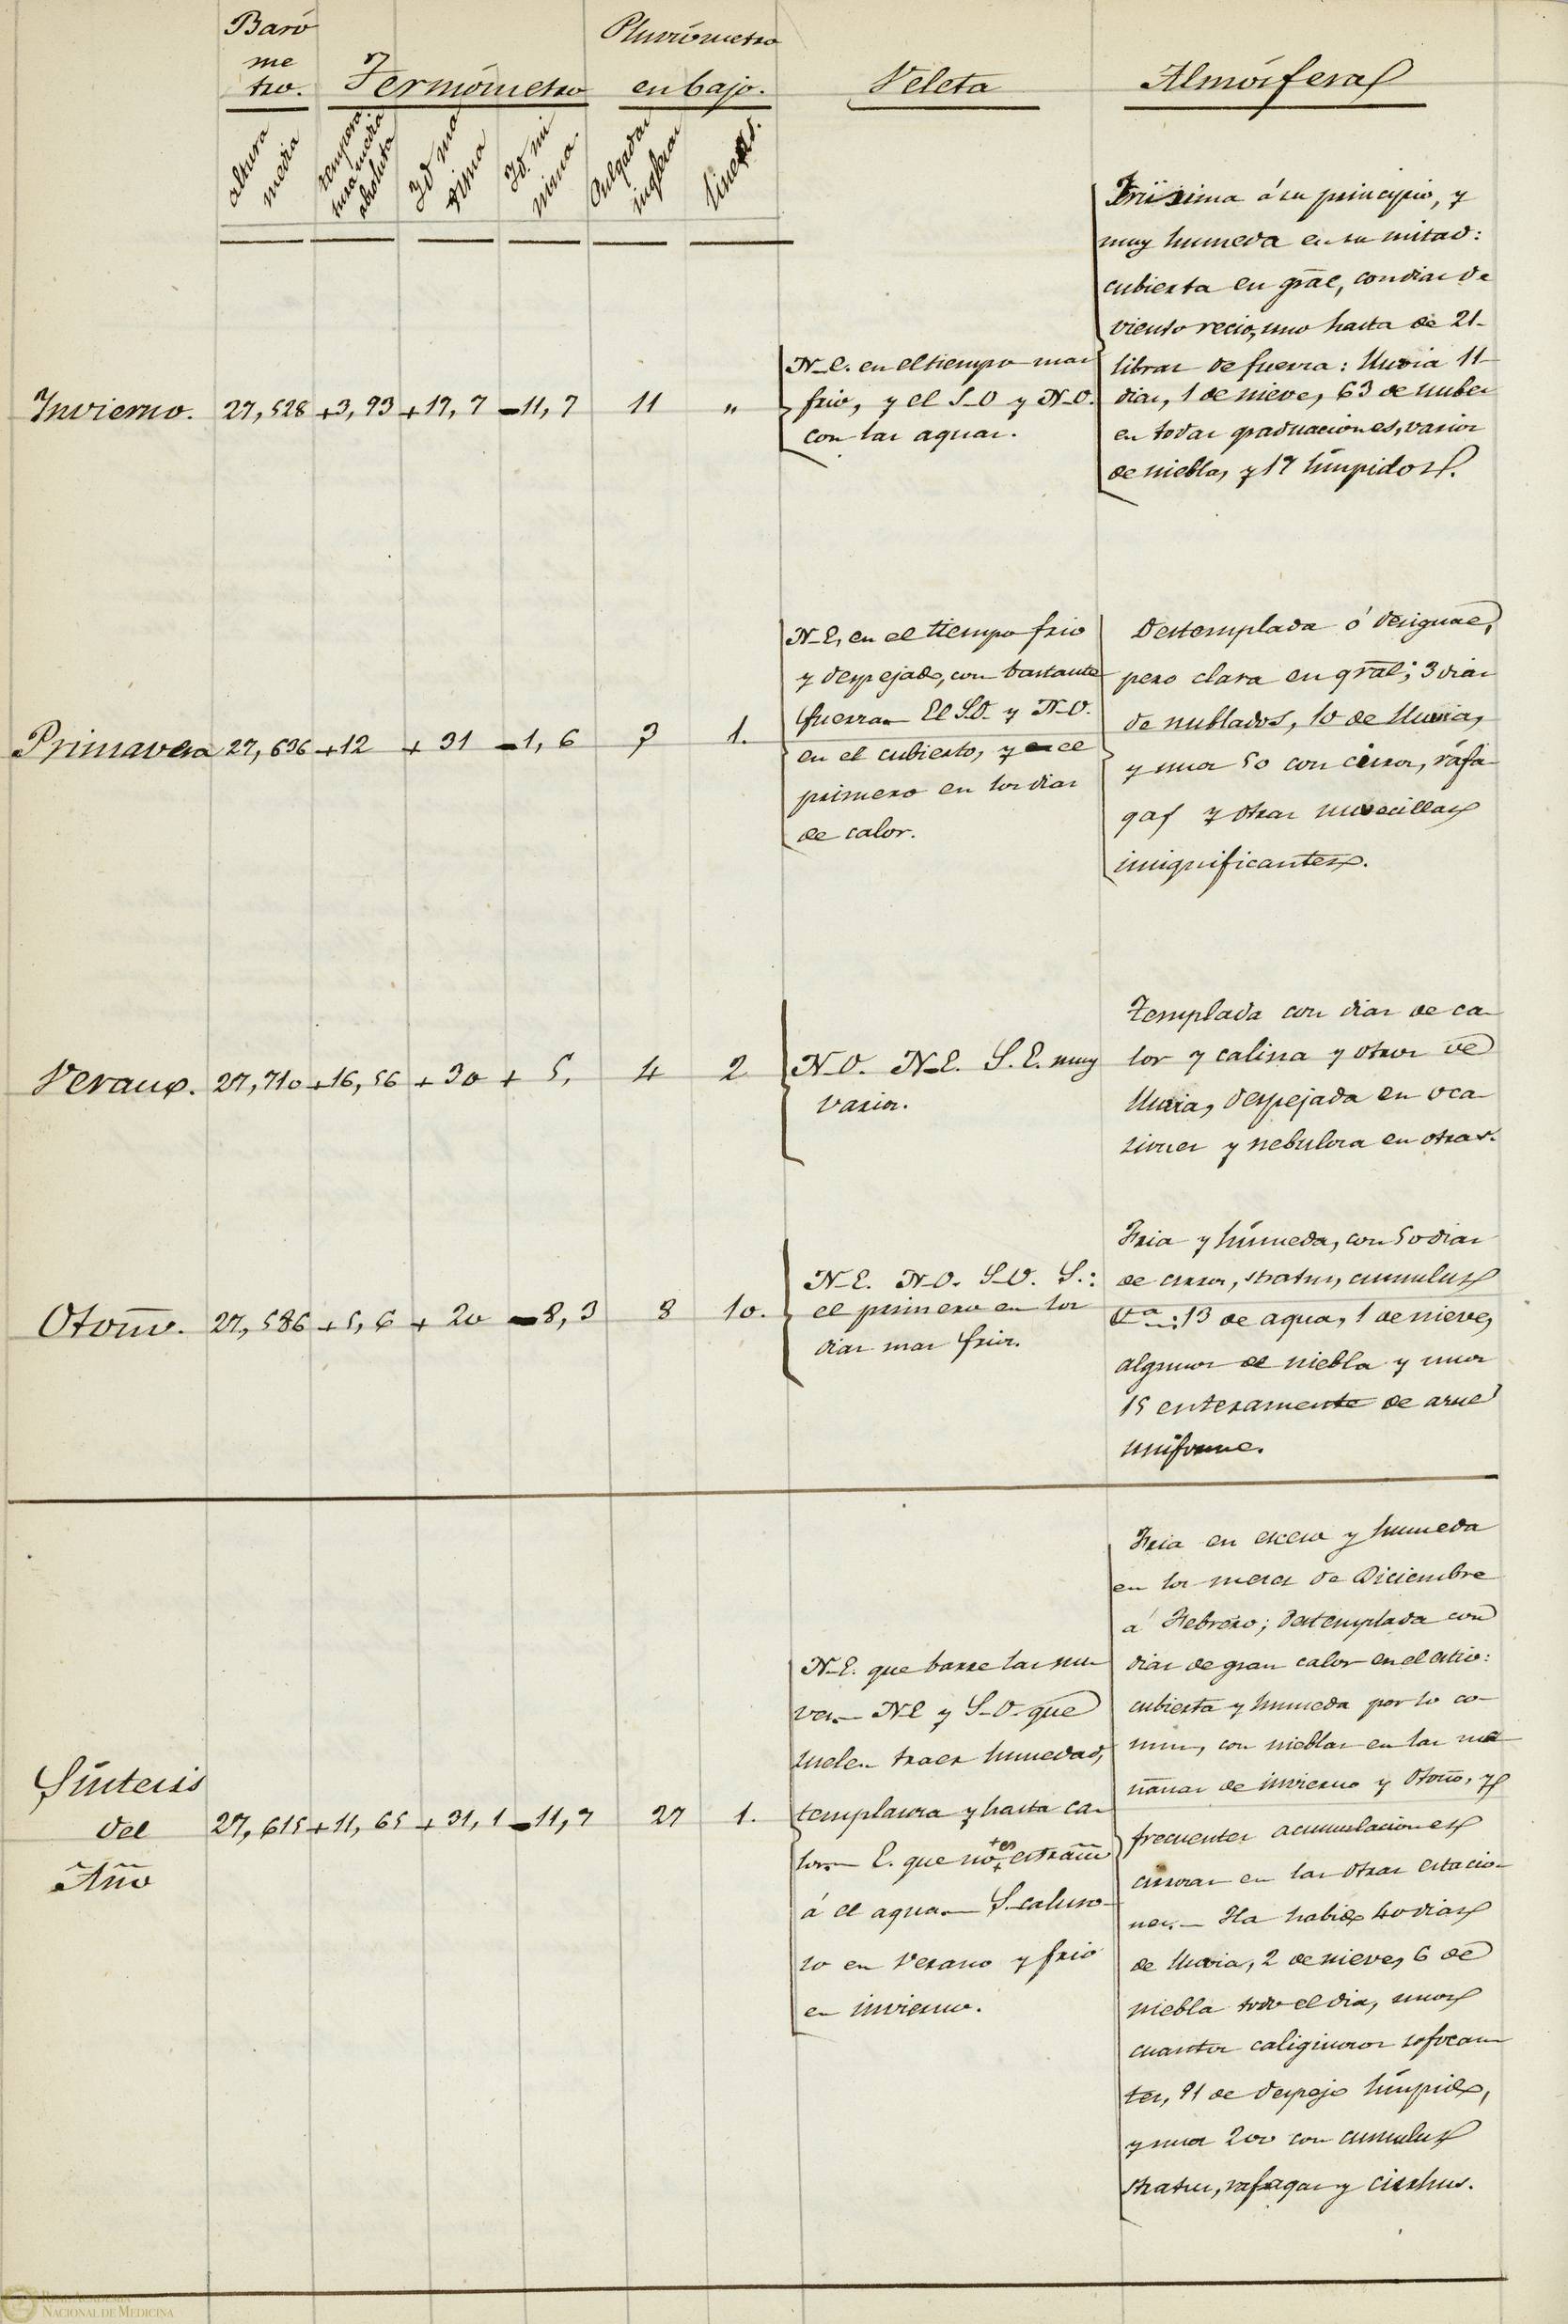 Baró
me
tro.
Termómetro
Pluviómetro
en bajo.
Veleta
Atmósfera
altura
media
tempera
tura media
absoluta
Id. ma
xima
Id. mi
nima.
Pulgadas
inglesas
lineas.
Invierno. 27,528 +3,93 +17,7 -11,7 11 „
N-E. en el tiempo mas
frio, y el S-O y N-O.
con las aguas.
Friisima á su principio, y
muy humeda en su mitad:
cubierta en grãl, con dias de
viento recio, uno hasta de 21-
libras de fuerza: lluvia 11
dias, 1 de nieve, 63 de nubes
en todas graduaciones, varios
de niebla, y 17 límpidos.
Primavera 27,636 +12 +31 -1,6 3 1.
N-E, en el tiempo frio
y despejado, con bastante
fuerza.- El S.O. y N-O.
en el cubierto, y el
primero en los dias
de calor.
Destemplada ó desigual,
pero clara en grãl; 3 dias
de nublados, 10 de lluvia,
y unos 50 con cirros, ráfa-
gas y otras nuvecillas
insignificantes.
Verano. 27,710 +16,56 +30 +5, 4 2
N-O. N-E. S.E. muy
varios.
Templada con dias de ca-
lor y calina y otros de
lluvia, despejada en oca-
siones y nebulosa en otras.
Otoño. 27,586 +5,6 +20 -8,3 8 10.
N-E. N-O. S-O. S.:
el primero en los
dias mas frios.
Fria y húmeda, con 50 dias
de cirros, stratus, cumulus
&.ª: 13 de agua, 1 de nieve,
algunos de niebla y unos
15 enteramente de azul
uniforme.
Síntesis
del
Año
27,615 +11,65 +31,1 -11,7 27 1.
N-E. que barre las nu-
ves.- NE y S-O que
suelen traer humedad,
templanza y hasta ca-
lor.- E. que no es estraño
á el agua.- S. caluro-
so en verano y frio
en invierno.
Fria en exceso y humeda
en los meses de Diciembre
á Febrero; destemplada con
dias de gran calor en el estio:
cubierta y humeda por lo co-
mun, con nieblas en las ma-
ñanas de invierno y Otoño, y
frecuentes acumulaciones
cirrosas en las otras estacio-
nes.- Ha habido 40 dias
de lluvia, 2 de nieve, 6 de
niebla todo el dia, unos
cuantos caliginosos sofocan-
tes, 91 de despejo límpido,
y unos 200 con cumulus
stratus, rafagas y cirrhus.
Real Academia
Nacional de Medicina